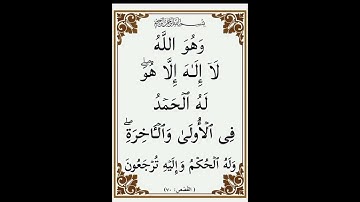 بِسْمِ اللَّهِ الرَّحْمَٰنِ الرَّحِيمِ
وَهُوَ اللَّهُ
لَآ إِلَـٰهَ إِلَّا هُوَۖ
لَهُ ٱلْحَمْدُ
فِى ٱلْأُولَىٰ وَٱلْـَٔاخِرَةِۖ
وَلَهُ ٱلْحُكْمُ وَإِلَيْهِ تُرْجَعُونَ
( القَصَص: ٧٠ )